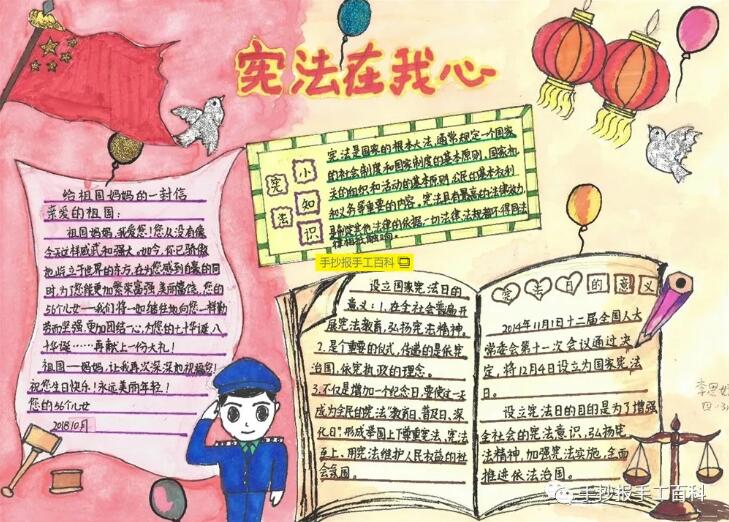 宪法在我心
给祖国妈妈的一封信
亲爱的祖国：
祖国妈妈，我爱您！您从没有像
今天这样威武和强大。如今，你已骄傲
地屹立于世界的东方，在为您感到自豪的同
时，为了您能更加繁荣富强，美丽富饶，您的
56个儿女——我们将一如继往地向您一样勤
劳而坚强，更加团结一心，为您的七十华诞、八
十华诞……再献上一份大礼！
祖国——妈妈，让我再次深深地祝福您！
祝您生日快乐！永远美丽年轻！
您的56个儿女
2018.10月
宪法
小知识
宪法是国家的根本大法，通常规定一个国家
的社会制度和国家制度的基本原则，国家机
关的组织和活动的基本原则，公民的基本权利
和义务等重要的内容。宪法具有最高的法律效力，
是制定其他法律的依据，一切法律、法规都不得同宪
法律相抵触。
手抄报手工百科
设立国家宪法日的
意义：1.在全社会普遍开
展宪法教育，弘扬宪法精神
2.是个重要的仪式，传递的是依宪
治国，依宪执政的理念。
3.不仅是增加一个纪念日，要使这一天
成为全民的宪法"教育日、普及日、深
化日"，形成举国上下尊重宪法、宪法
至上、用宪法维护人民权益的社
会氛围。
宪法日的意义
2014年11月1日十二届全国人大
常委会第十一次会议通过决
定，将12月4日设立为国家宪法
日。
设立宪法日的目的是为了增强
全社会的宪法意识，弘扬宪
法精神，加强宪法实施，全面
推进依法治国。
手抄报手工百科